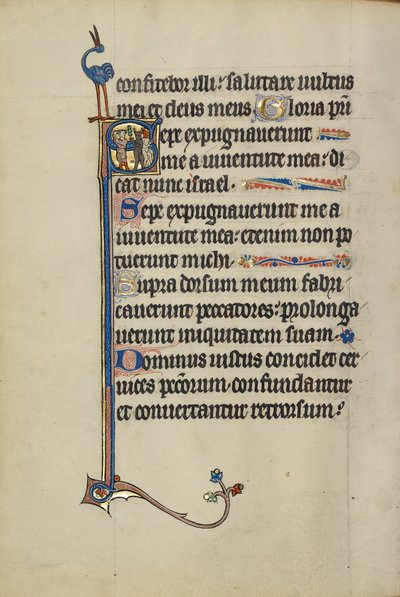 confitebor illi: salutare uultus
mei et deus meus Gloria pri
Sepe expugnauerunt
me a iuuentute mea: di
cat nunc israel.
Sepe expugnauerunt me a
iuuentute mea: etenim non po
tuerunt michi.
Supra dorsum meum fabri
cauerunt peccatores: prolonga
uerunt iniquitatem suam.
Dominus iustus concidet cer
uices pccorum. confundantur
et conuertantur retrorsum: